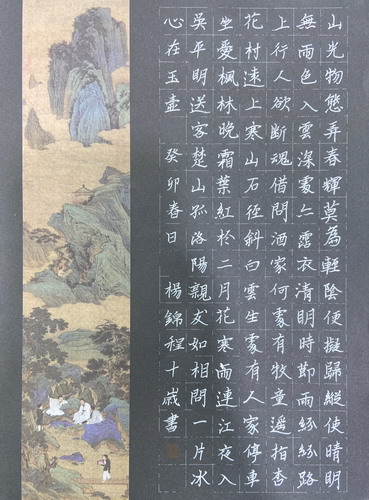 山光物態弄春輝莫為輕陰便擬歸縱使晴明
無雨色入雲深處亦露衣清明時節雨紛紛路
上行人欲斷魂借問酒家何處有牧童遙指杏
花村遠上寒山石径斜白雲生處有人家停車
坐愛楓林晚霜葉紅於二月花寒雨連江夜入
吳平明送客楚山孤洛陽親友如相問一片冰
心在玉壺 癸卯春日 楊錦程十歲書